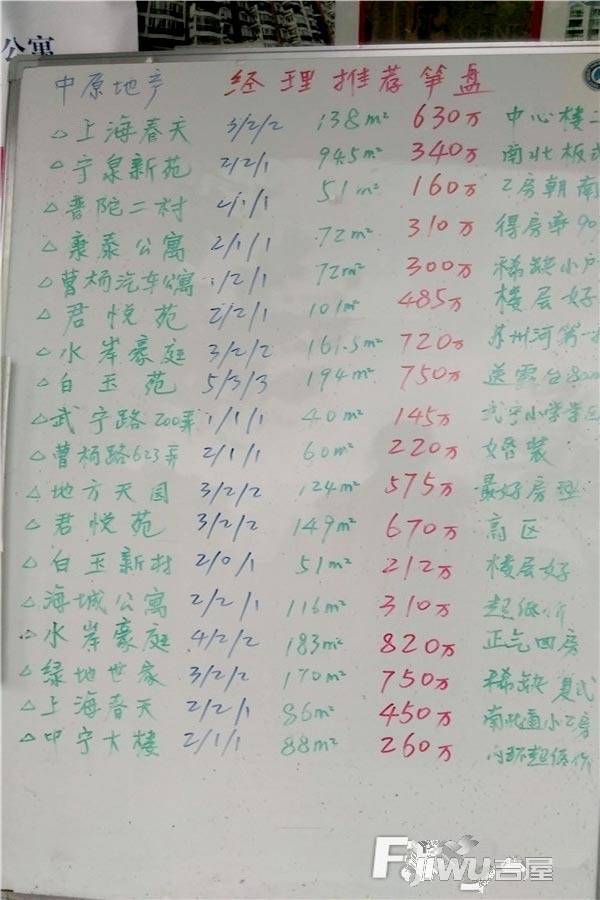 公寓
中原地产 经理推荐笋盘
△上海春天 3/2/2 138m² 630万 中心楼
△宁泉新苑 2/2/1 94.5m² 340万 南北板式
△普陀二村 /1/1 51m² 160万 2房朝南
△康泰公寓 2/1/1 72m² 310万 得房率90
△曹杨汽车公寓 1/2/1 72m² 300万 稀缺小户
△君悦苑 2/2/1 101m² 485万 楼层好
△水岸豪庭 3/2/2 161.5m² 720万 苏州河第一
△白玉苑 5/3/3 194m² 750万 送露台80
△武宁路200弄 1/1/1 40m² 145万 武宁小学学区
△曹杨路623弄 2/1/1 60m² 220万 婚装
△地方天园 3/2/2 124m² 575万 最好房型
△君悦苑 3/2/2 149m² 670万 高区
△白玉新村 2/0/1 51m² 212万 楼层好
△海城公寓 2/2/1 116m² 310万 超低价
△水岸豪庭 4/2/2 183m² 820万 正气四房
△绿地世家 3/2/2 170m² 750万 稀缺复式
△上海春天 2/2/1 86m² 450万 南北通小2房
△中宁大楼 2/1/1 88m² 260万 内环超低价
jiwu吉屋